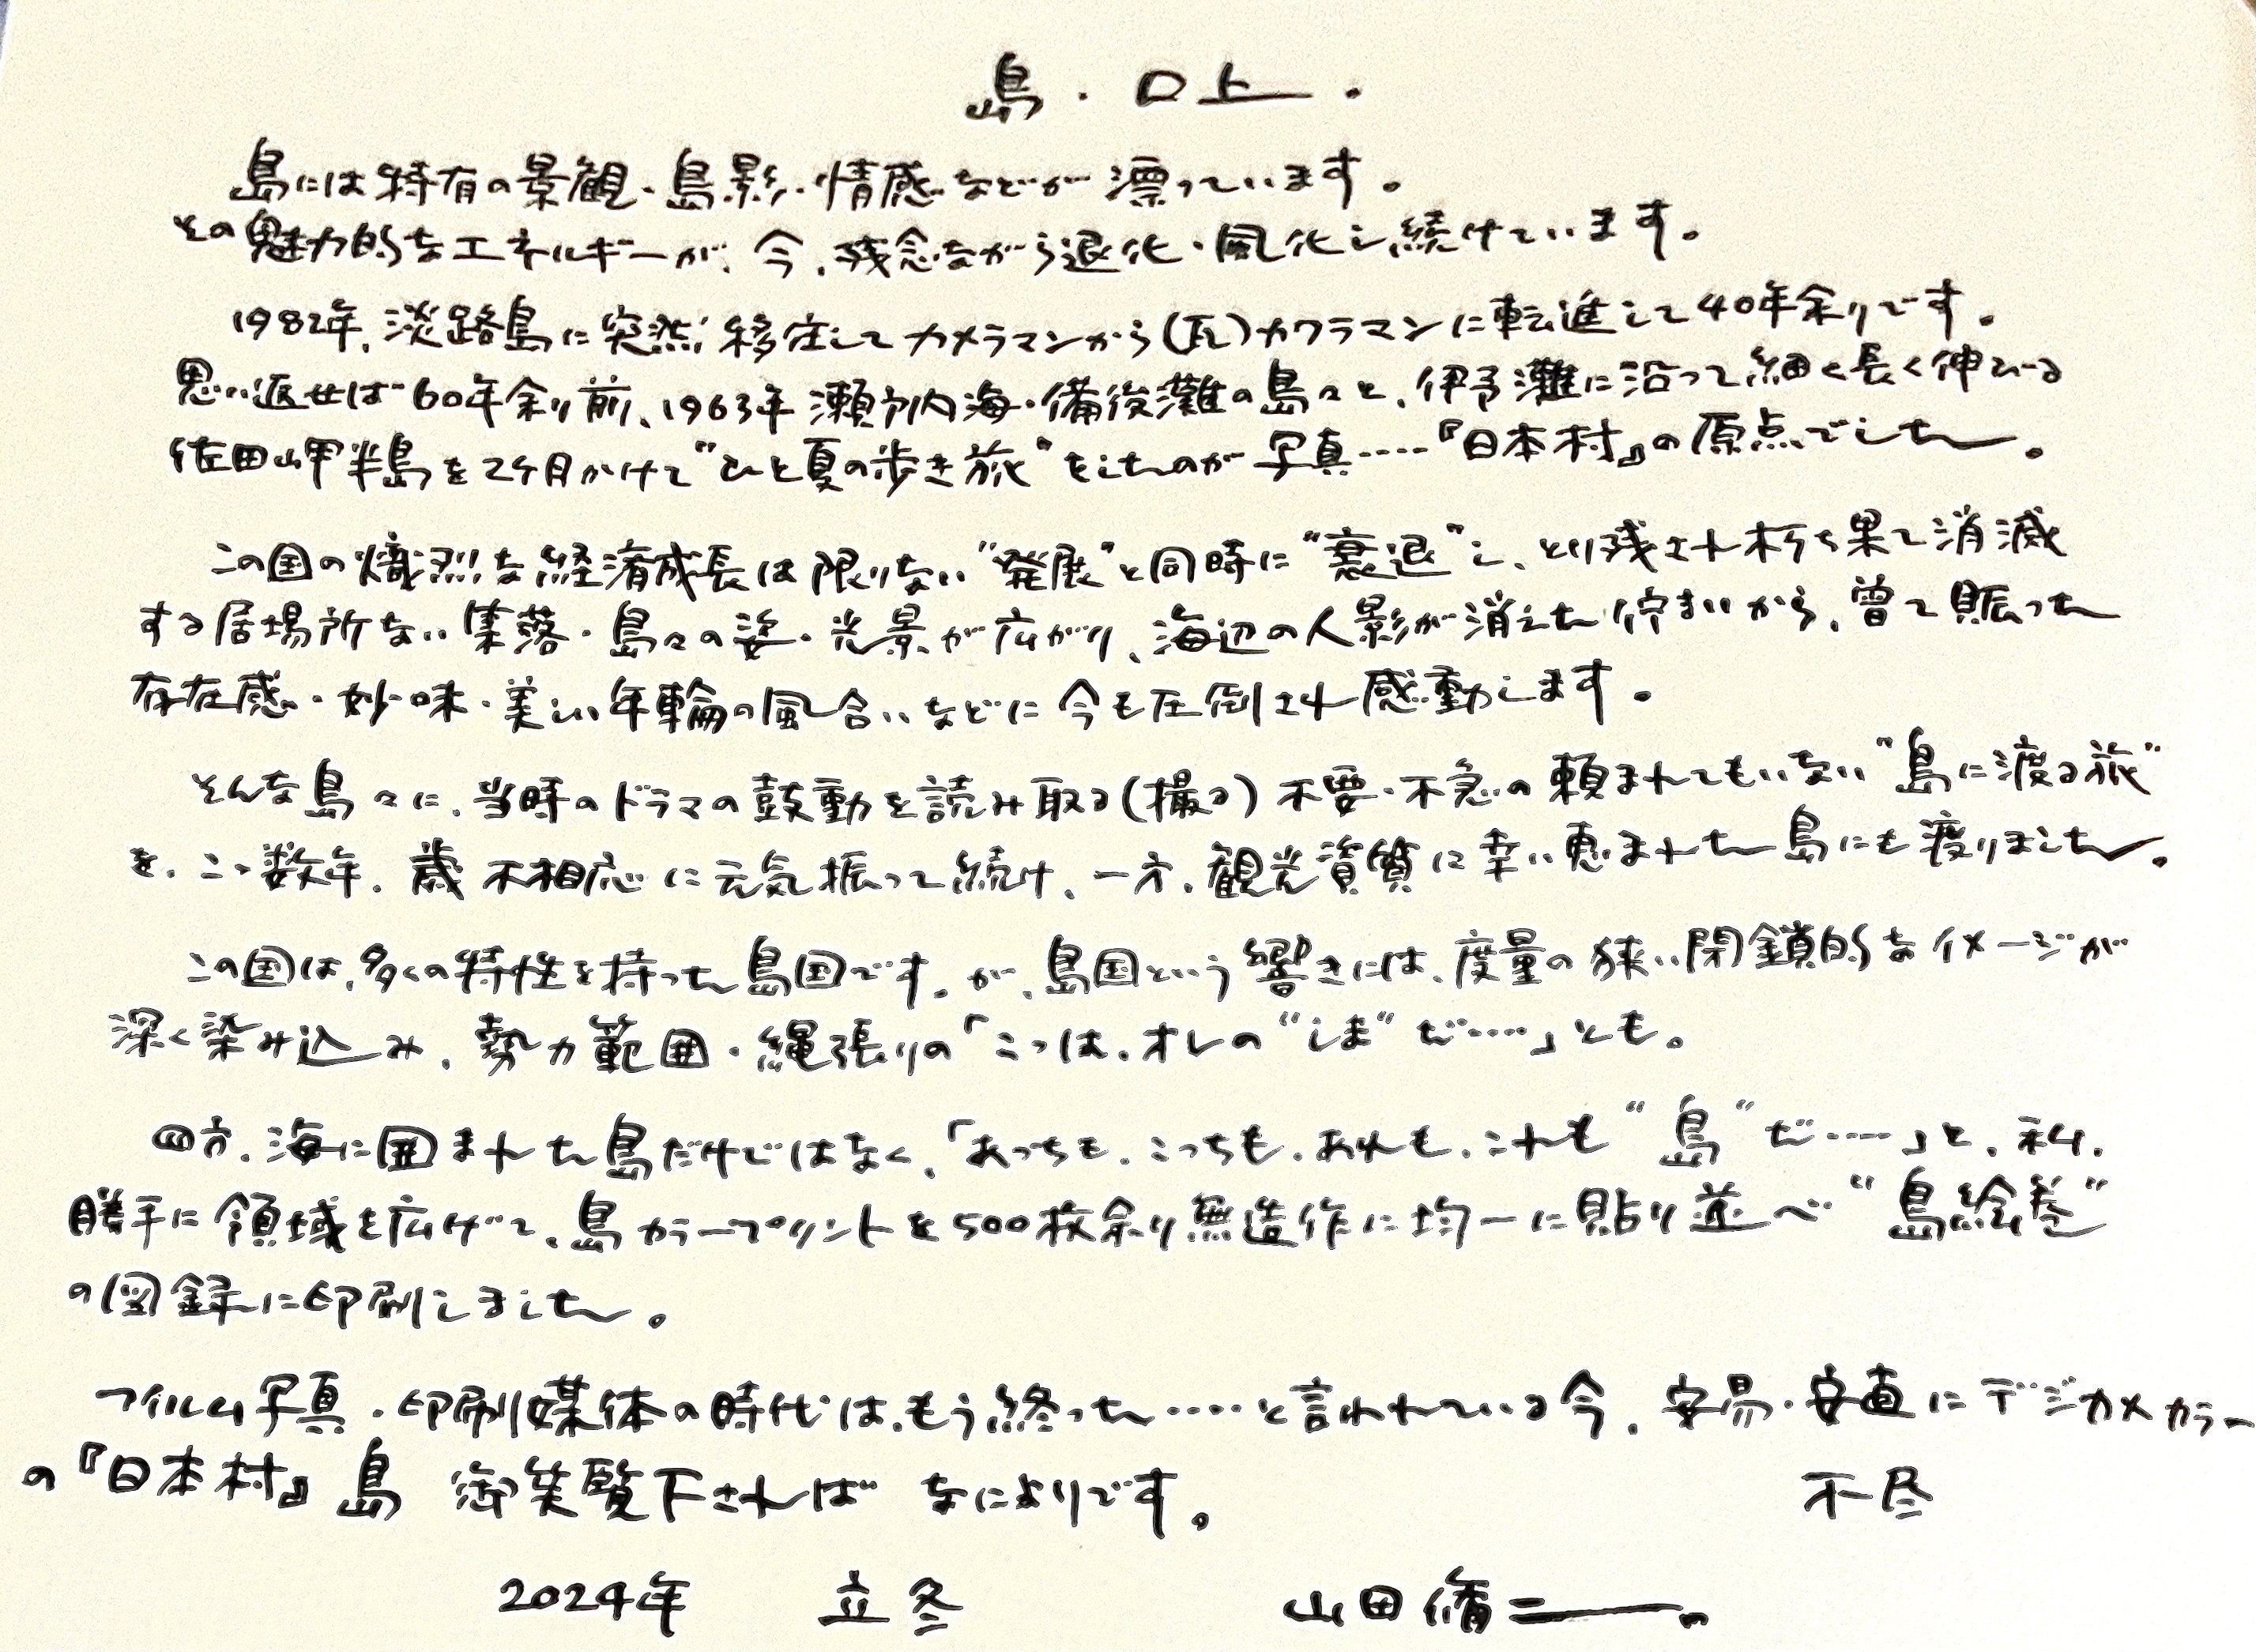 島・口上.
島には特有の景観・島影・情感などが漂っています。
その魅力的なエネルギーが、今、残念ながら退化・風化し続けています。
1982年、淡路島に突然移住してカメラマンから(瓦)カワラマンに転進して40年余りです。
思い返せば60年余り前、1963年瀬戸内海・備後灘の島々と、伊予灘に沿って細く長く伸びる
佐田岬半島を2ケ月かけて"ひと夏の歩き旅"をしたのが写真‥‥『日本村』の原点でした。
この国の熾烈な経済成長は限りない"発展"と同時に"衰退"し、とり残され朽ち果て消滅
する居場所ない集落・島々の姿・光景が広がり、海辺の人影が消えた佇まいから、曽て賑った
存在感・妙味・美しい年輪の風合いなどに今も圧倒され感動します。
そんな島々に、当時のドラマの鼓動を読み取る(撮る)不要・不急の頼まれてもいない"島に渡る旅"
を、こゝ数年、歳不相応に元気振って続け、一方、観光資質に幸い恵まれた島にも渡りました。
この国は、多くの特性を持った島国です。が、島国という響きには、度量の狭い閉鎖的なイメージが
深く染み込み、勢力範囲・縄張りの「こゝは、オレの"しま"だ‥‥」とも。
四方、海に囲まれた島だけではなく、「あっちも、こっちも、あれも、これも"島"だ‥‥」と、私、
勝手に領域を広げて、島カラープリントを500枚余り無造作に均一に貼り並べ"島絵巻"
の図録に印刷しました。
フィルム写真・印刷媒体の時代は、もう終った‥‥と言われている今、安易・安直にデジカメカラー
の『日本村』島 御笑覧下されば なによりです。 不尽
2024年 立冬 山田脩二。